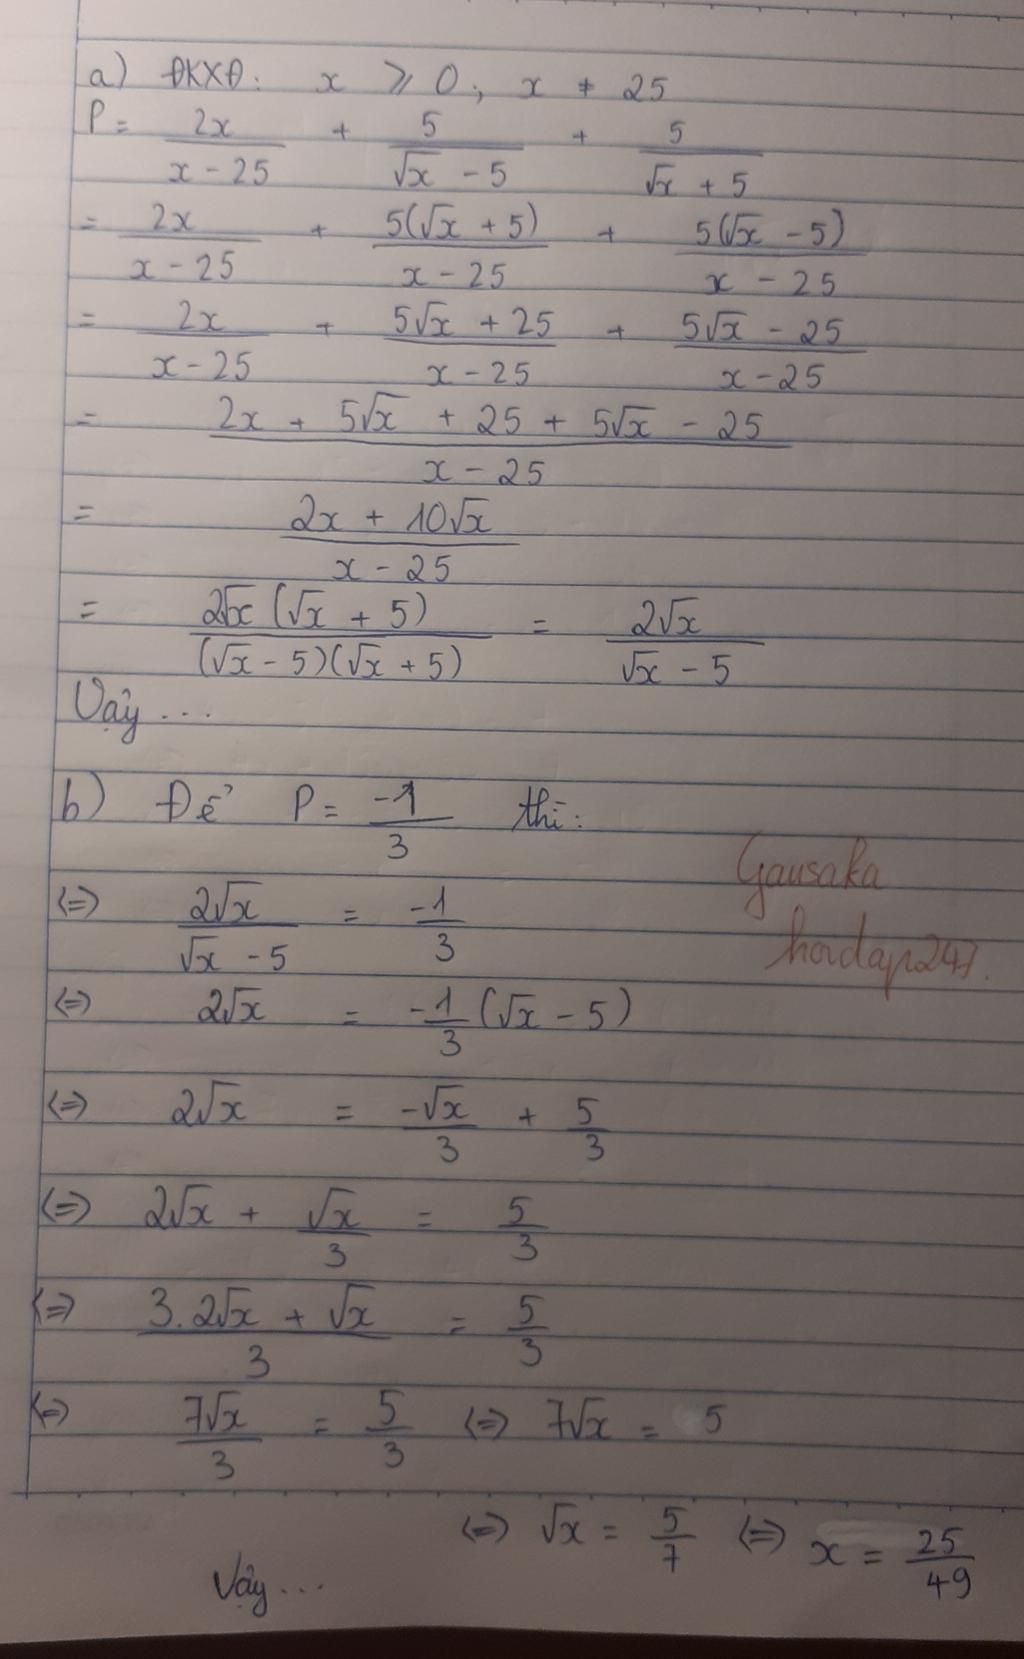 a) ĐKXĐ: x ≥ 0; x ≠ 25
P = 2x/(x - 25) + 5/(√x - 5) + 5/(√x + 5)
= 2x/(x - 25) + 5(√x + 5)/(x - 25) + 5(√x - 5)/(x - 25)
= 2x/(x - 25) + (5√x + 25)/(x - 25) + (5√x - 25)/(x - 25)
= (2x + 5√x + 25 + 5√x - 25)/(x - 25)
= (2x + 10√x)/(x - 25)
= 2√x(√x + 5)/((√x - 5)(√x + 5)) = 2√x/(√x - 5)
Vậy ...
b) Để P = -1/3 thì:
⇔ 2√x/(√x - 5) = -1/3
Gausaka
hoidap247.
⇔ 2√x = -1/3 (√x - 5)
⇔ 2√x = -√x/3 + 5/3
⇔ 2√x + √x/3 = 5/3
⇔ (3.2√x + √x)/3 = 5/3
⇔ 7√x/3 = 5/3 ⇔ 7√x = 5
⇔ √x = 5/7 ⇔ x = 25/49
Vậy ...